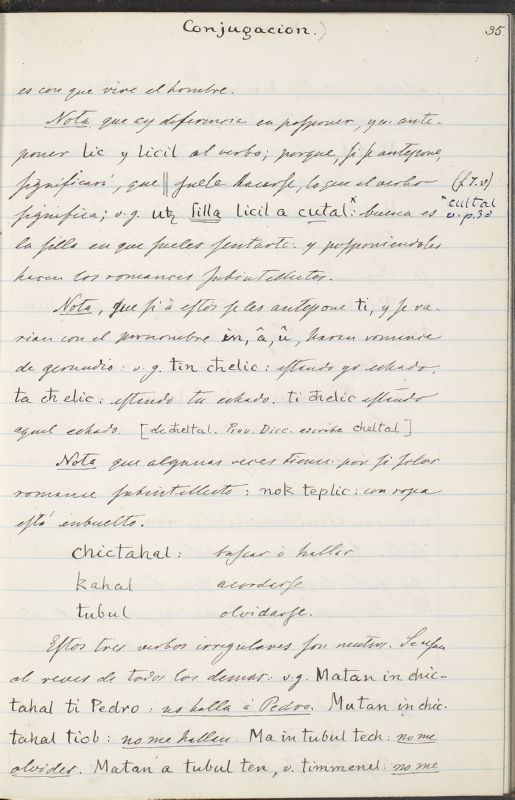 Conjugacion.)
35
es con que vive el hombre.
Nota que ay diferencia en posponer, y en ante-
poner lic y licil al verbo; porque, si se antepone,
significará, que || suele hacerse, lo que el verbo (f 7. v)
significa; v.g. utz silla licil a cutal:x buena es x cultal
v. p. 30
la silla en que sueles sentarte. y posponiendoles
hacen los romances subintellectos.
Nota, que si à estos se les antepone ti, y se va-
rian con el pronombre in, â, û, hacen romance
de gerundio: v.g. tin chelic: estando yo echado,
ta chelic: estando tu echado. ti chelic estando
aquel echado. [de cheltal. Prov. Dicc. escribe cheltal]
Nota que algunas veces tienen por si solos
romance subintellecto; nok teplic: con ropa
está enbuelto.
chictahal: buscar ò hallar
kahal acordarse
tubul olvidarse.
Estos tres verbos irregulares son neutros. Se usan
al reves de todos los demas: v.g. Matan in chic-
tahal ti Pedro: no halla à Pedro. Mutan in chic-
tahal tiob: no me hallen. Ma in tubul tech: no me
olvides. Matan a tubul ten, v. timmenel: no me